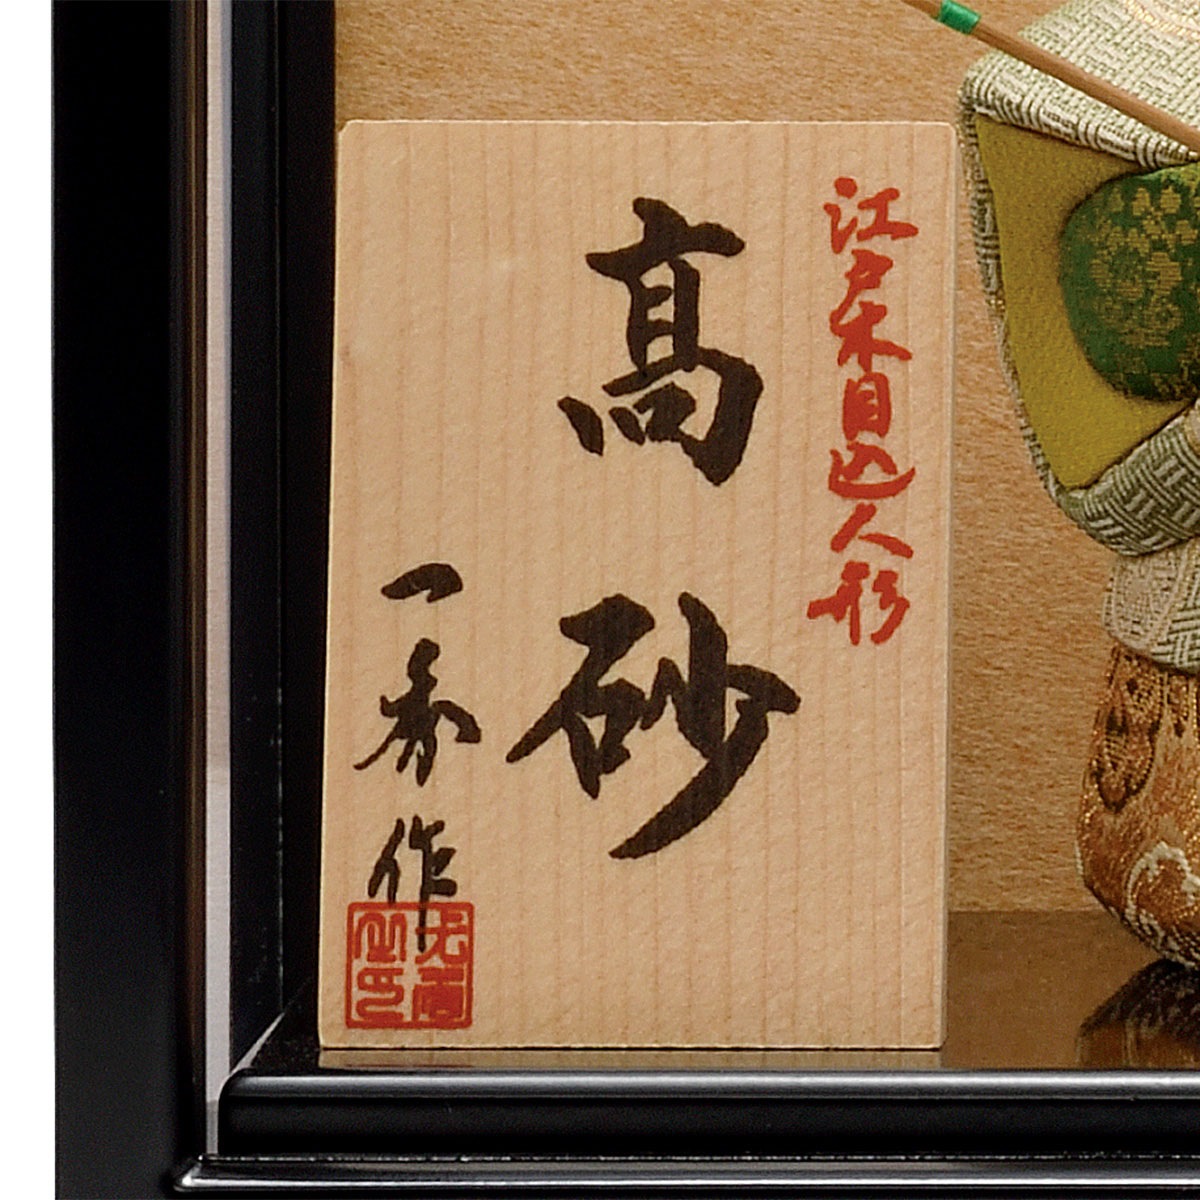 江戸木目込人形
高砂
一秀作